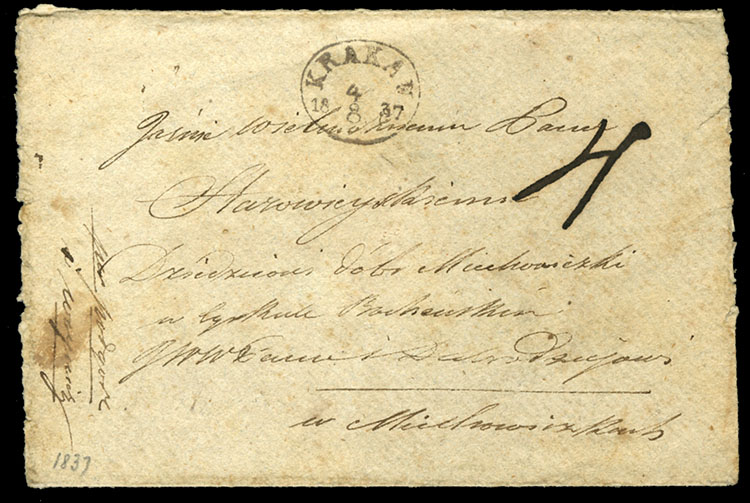 KRAKAU
4
18 8 37
Jaśnie Wielmożnemu Panu
4
Starowieyskiemu
Dziedzicowi dóbr Miechowiczki
w Cyrkule Bocheńskim
JWW Panu i Dobrodziejowi
w Miechowiczkach
per Podgorze
1837